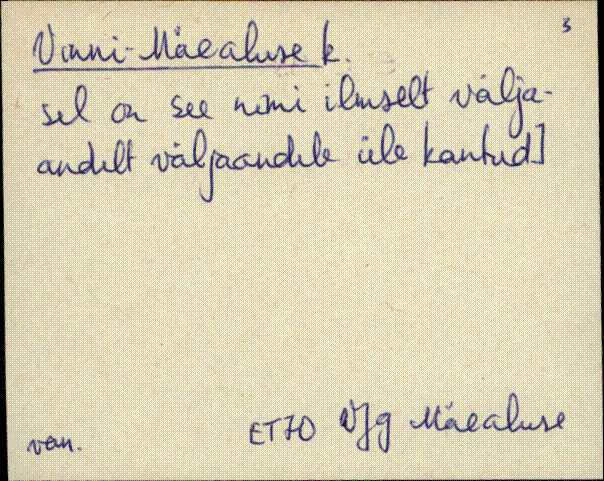 3
Vinni-Mäealuse k.
sel on see nimi ilmselt välja-
andelt väljaandele üle kantud]
van. ET70 VJg Mäealuse